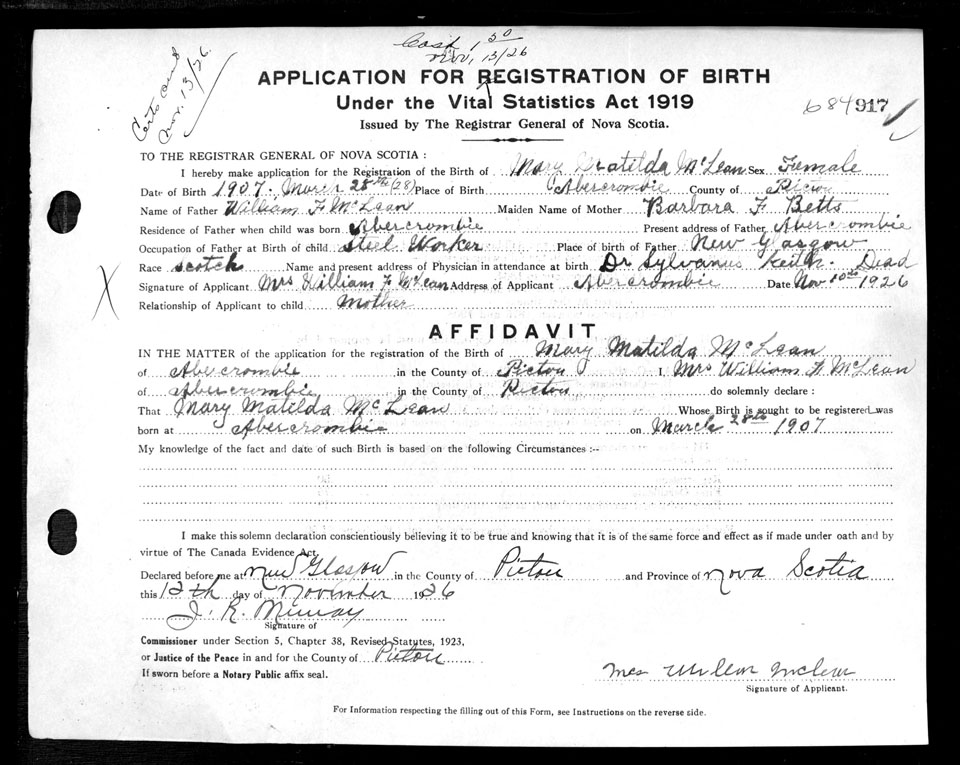 Cash 1 50
Nov. 13/26
Nov. 13/26.
APPLICATION FOR REGISTRATION OF BIRTH
Under the Vital Statistics Act 1919
684 917
Issued by The Registrar General of Nova Scotia.
TO THE REGISTRAR GENERAL OF NOVA SCOTIA :
I hereby make application for the Registration of the Birth of Mary Matilda McLean Sex Female
Date of Birth 1907. March 28th (28) Place of Birth Abercrombie County of Pictou
Name of Father William F McLean Maiden Name of Mother Barbara F Betts
Residence of Father when child was born Abercrombie Present address of Father Abercrombie
Occupation of Father at Birth of child Steel Worker Place of birth of Father New Glasgow
Race Scotch Name and present address of Physician in attendance at birth Dr Sylvanus Keith. Dead
X Signature of Applicant Mrs William F McLean Address of Applicant Abercrombie Date Nov 10th 1926
Relationship of Applicant to child Mother
AFFIDAVIT
IN THE MATTER of the application for the registration of the Birth of Mary Matilda McLean
of Abercrombie in the County of Pictou I, Mrs William F McLean
of Abercrombie in the County of Pictou do solemnly declare :
That Mary Matilda McLean Whose Birth is sought to be registered was
born at Abercrombie on March 28th 1907
My knowledge of the fact and date of such Birth is based on the following Circumstances :--
I make this solemn declaration conscientiously believing it to be true and knowing that it is of the same force and effect as if made under oath and by
virtue of The Canada Evidence Act.
Declared before me at New Glasgow in the County of Pictou and Province of Nova Scotia
this 12th day of November 1926
J. R. Murray
Signature of
Commissioner under Section 5, Chapter 38, Revised Statutes, 1923,
or Justice of the Peace in and for the County of Pictou
If sworn before a Notary Public affix seal.
Mrs William McLean
Signature of Applicant.
For Information respecting the filling out of this Form, see Instructions on the reverse side.